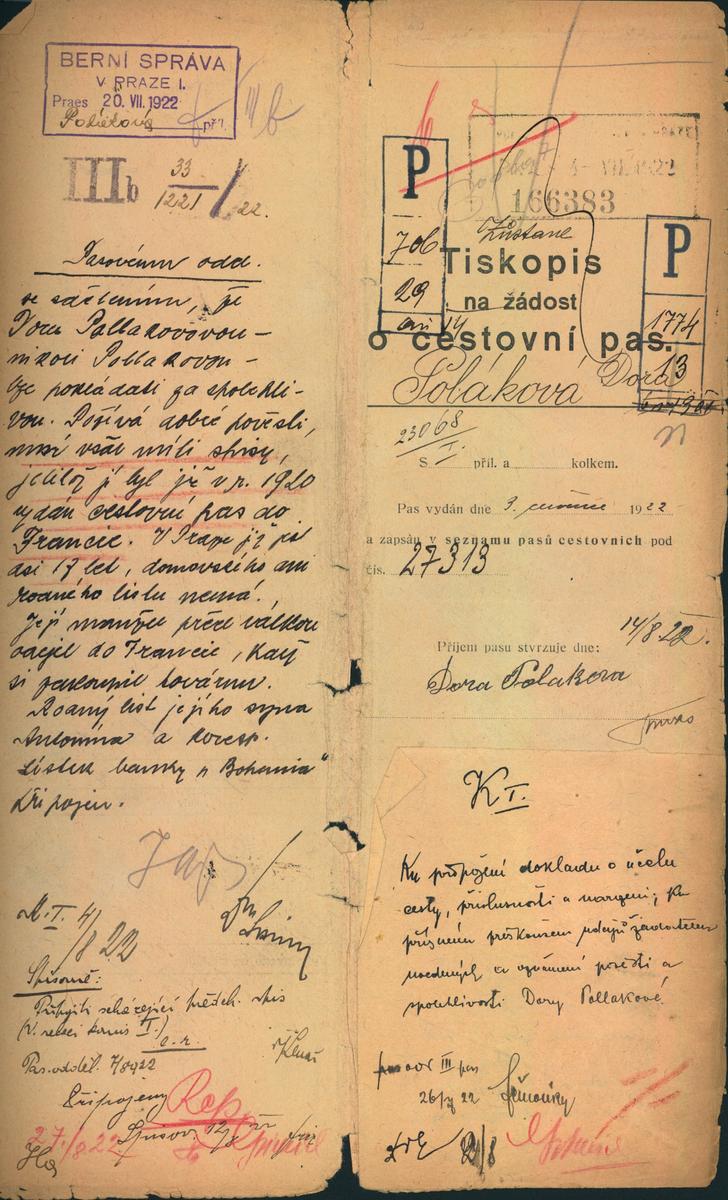 BERNÍ SPRÁVA
V PRAZE I.
Praes 20. VII. 1922
příl.
IIIb 33/1221/22.
Pasovému odd.
se sdělením, že
Dora Pallakovovou –
nikoli Pollakovou –
lze pokládati za spolehli-
vou. Požívá dobré pověsti,
musí však míti spisy,
jelikož jí byl již v r. 1920
vydán cestovní pas do
Francie. V Praze již jest
asi 17 let, domovského ani
rodného listu nemá.
Její manžel před válkou
odejel do Francie, kdež
si zakoupil továrnu.
Rodný list jejího syna
Antonína a koresp.
lístek banky „Bohemia"
připojen.
K.I. 4/8 22
Písárně:
Připojiti scházející předch. spis
Pas. odděl. 7/8 922
Připojeny
Spisov. 12/8
27./8 22
P
706
29
P
1774
13
VII. 1922
166383
Zůstane
Tiskopis
na žádost
o cestovní pas.
Poláková Dora
23068/I.
S příl. a kolkem.
Pas vydán dne 3. 1922
a zapsán v seznamu pasů cestovních pod
čís. 27313
Příjem pasu stvrzuje dne: 14/8 22.
Dora Polakova
K I.
Ku připojení dokladu o účelu
cesty, příslušnosti a narození; ku
přísnému přezkoušení údajů žadatelem
uvedených a oznámení pověsti a
spolehlivosti Dory Pollakové.
III pas
26/7 22